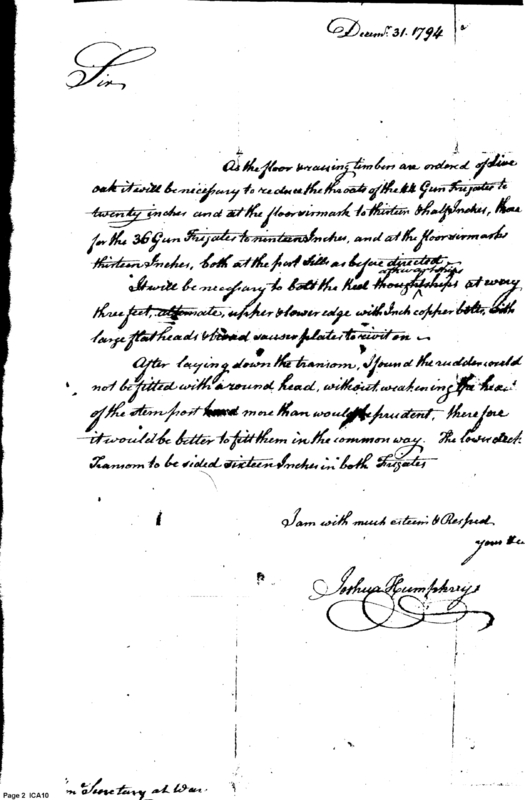 Decemr. 31. 1794
Sir
As the floor & raising timbers are ordered of Live
oak it will be necessary to reduce the throats of the 44 Gun Frigates to
twenty inches and at the floor sirmark to thirteen & half Inches, those
for the 36 Gun Frigates to nineteen Inches, and at the floor sirmarks
thirteen Inches, both at the port Sills as before directed
athwartships
It will be necessary to bolt the Keel thoughtships at every
three feet, alternate, upper & lower edge with Inch copper bolts, with
large flat heads & broad sauser plates to rivit on
After laying down the transom, I found the rudder could
not be fitted with a round head, without weakening the head
of the stern port more than would be prudent, therefore
it would be better to fitt them in the common way. The lower deck
Transom to be sided sixteen Inches in both Frigates
I am with much esteem & Respect
yours &c
Joshua Humphreys
Secretary at War.
Page 2 ICA10